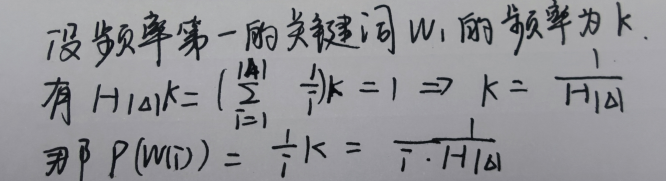 设频率第一的关键词 W₁ 的频率为 k.
有 H|Δ|k = (∑_{i=1}^{|Δ|} 1/i)k = 1 ⇒ k = 1/H|Δ|
那 P(W(i)) = 1/i k = 1/(i·H|Δ|)